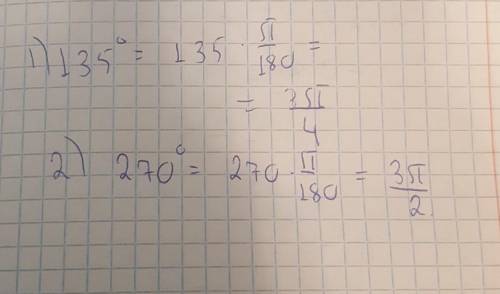 1) 135° = 135 · π/180 =
= 3π/4
2) 270° = 270 · π/180 = 3π/2